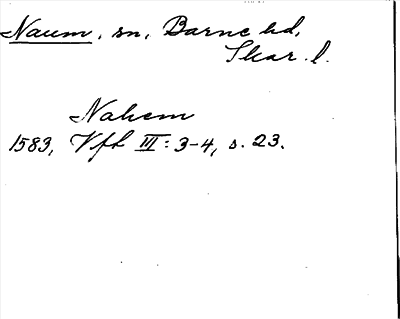 Naum, sn, Barne hd,
Skar. l.
Nahem
1583, Vft III: 3-4, s. 23.